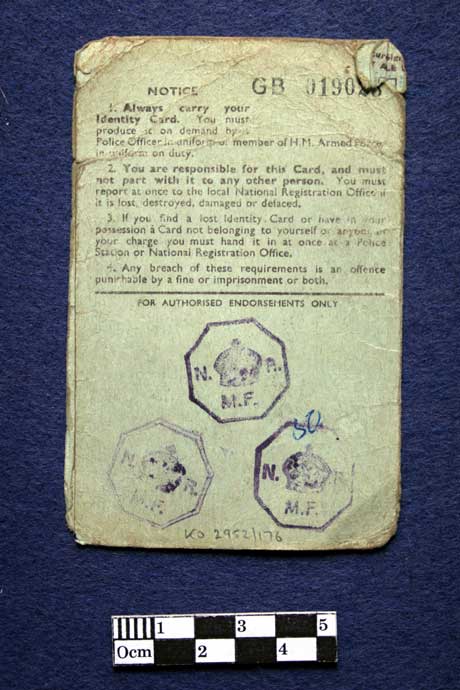 NOTICE GB 0190
1. Always carry your
Identity Card. You must
produce it on demand by a
Police Officer in uniform or member of H.M. Armed Forces
in uniform on duty.
2. You are responsible for this Card, and must
not part with it to any other person. You must
report at once to the local National Registration Office if
it is lost, destroyed, damaged or defaced.
3. If you find a lost Identity Card or have in your
possession a Card not belonging to yourself or anyone in
your charge you must hand it in at once at a Police
Station or National Registration Office.
4. Any breach of these requirements is an offence
punishable by a fine or imprisonment or both.
FOR AUTHORISED ENDORSEMENTS ONLY
N. R.
M.F.
N. R.
M.F.
30
N. R.
M.F.
KO 2952/176
1 3 5
0cm 2 4